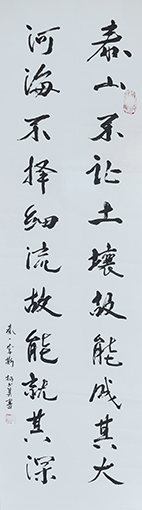 泰山不让土壤故能成其大
河海不择细流故能就其深